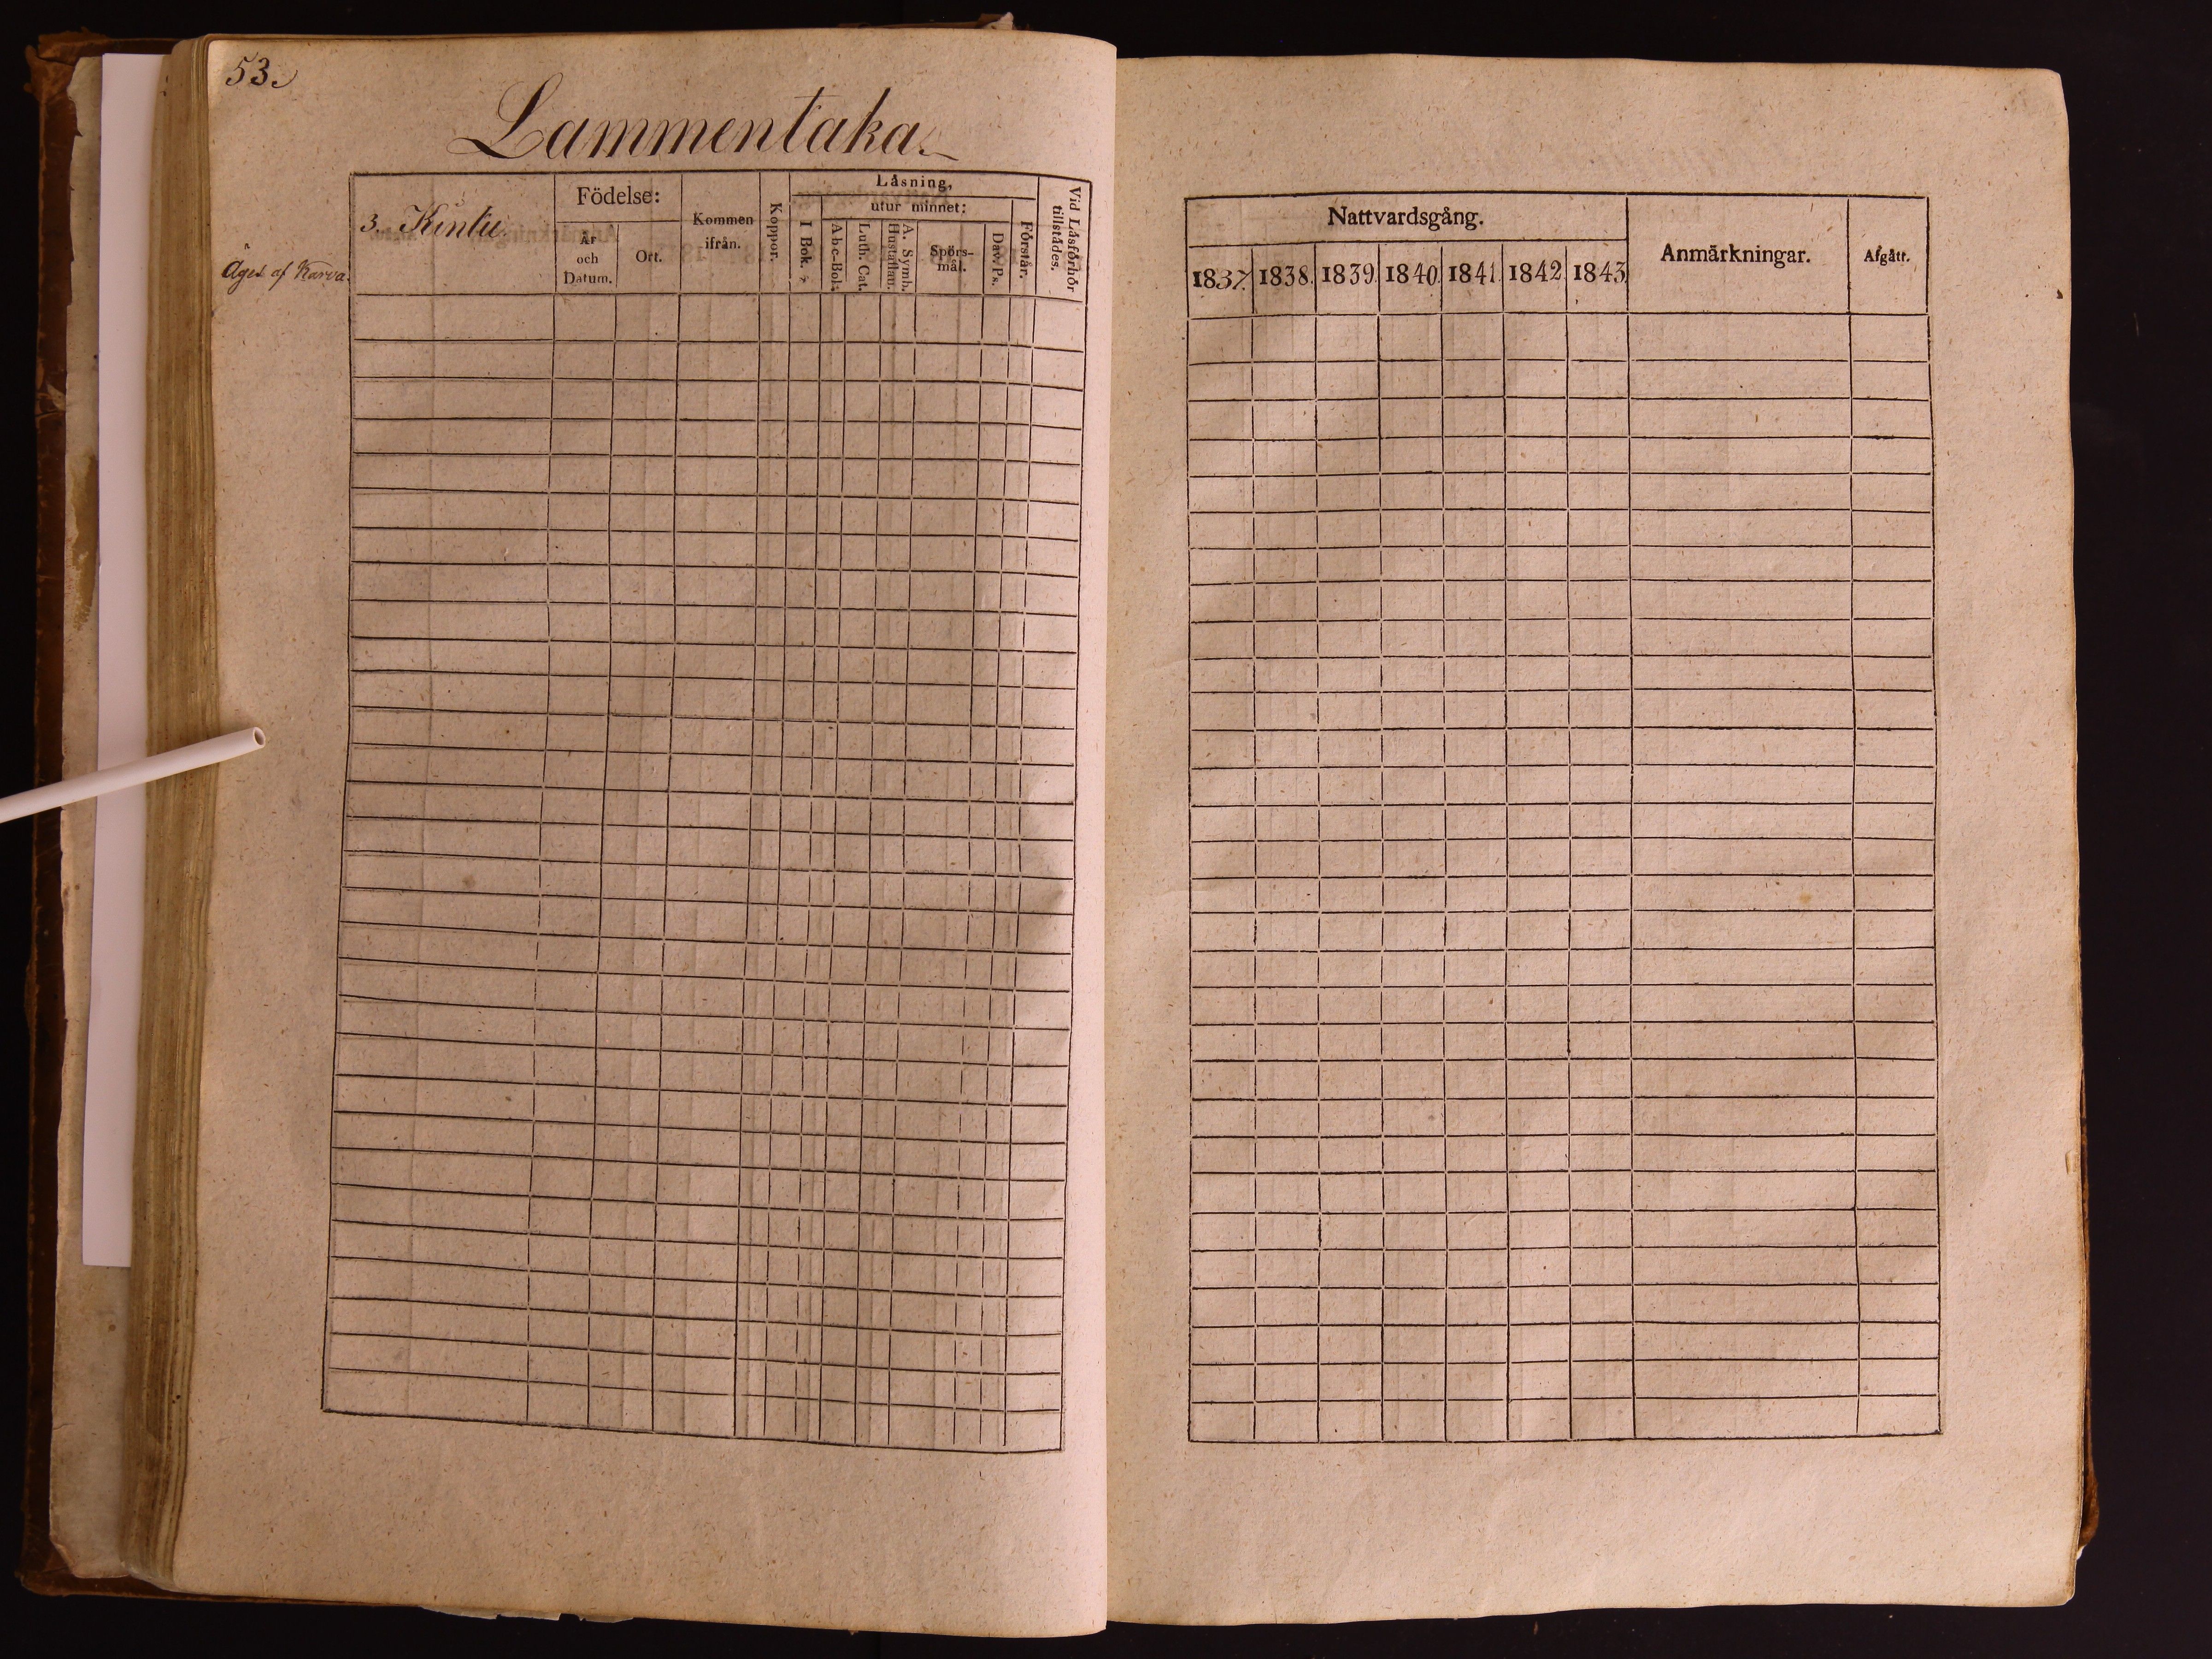 53.
Lammentaka.
3. Kintu.
Åges af Karva.
Födelse:
År och Datum.
Ort.
Kommen ifrån.
Koppor.
Låsning,
I Bok.
utur minnet:
Abc-Bok.
Luth. Cat.
A. Symb. Hustaflan.
Spörs-mål.
Dav. Ps.
Förstår.
Vid Låsförhör tillstådes.
Nattvardsgång.
1837. 1838. 1839. 1840. 1841. 1842. 1843.
Anmärkningar.
Afgått.